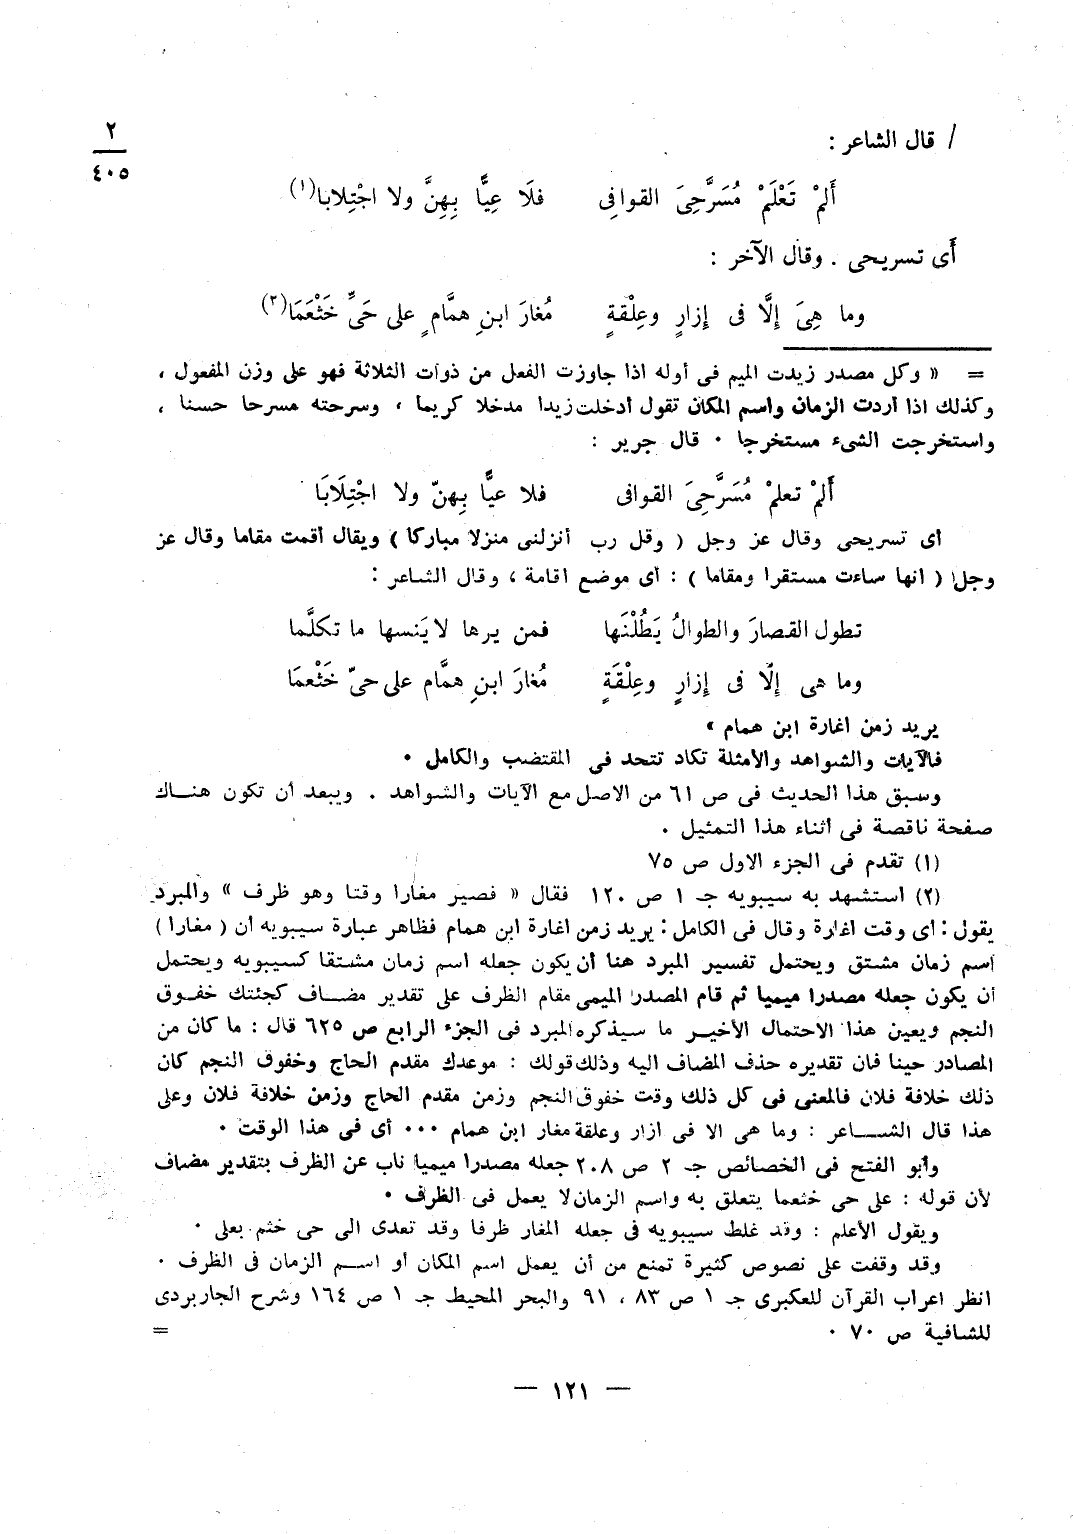 ٢
٤٠٥
/ قال الشاعر :
أَلمْ تَعْلَمْ مُسَرَّحِىَ القوافِى فلَا عِيًّا بِهِنَّ ولا اجْتِلابا(١)
أَى تسريحى . وقال الآخر :
وما هِىَ إِلَّا فى إزارٍ وعِلْقةٍ مُغارَ ابنِ همَّامٍ على حَىِّ خَثْعَمَا(٢)
= « وكل مصدر زيدت الميم فى أوله اذا جاوزت الفعل من ذوات الثلاثة فهو على وزن المفعول ،
وكذلك اذا أردت الزمان واسم المكان تقول أدخلت زيدا مدخلا كريما ، وسرحته مسرحا حسنا ،
واستخرجت الشىء مستخرجا . قال جرير :
أَلمْ تعلمْ مُسَرَّحِىَ القوافى فلا عيًّا بِهنّ ولا اجْتِلَابَا
أى تسريحى وقال عز وجل ( وقل رب أنزلنى منزلا مباركا ) ويقال أقمت مقاما وقال عز
وجل ( انها ساءت مستقرا ومقاما ) : أى موضع اقامة ، وقال الشاعر :
تطول القصارَ والطوالُ يَطُلْنَها فمن يرها لا يَنسها ما تكلَّما
وما هى إلَّا فى إزارٍ وعِلْقَةٍ مُغارَ ابنِ همَّام على حىّ خَثْعمَا
يريد زمن اغارة ابن همام »
فالآيات والشواهد والأمثلة تكاد تتحد فى المقتضب والكامل .
وسبق هذا الحديث فى ص ٦١ من الاصل مع الآيات والشواهد . ويبعد أن تكون هنـــاك
صفحة ناقصة فى أثناء هذا التمثيل .
(١) تقدم فى الجزء الاول ص ٧٥
(٢) استشهد به سيبويه جـ ١ ص ١٢٠ فقال « فصير مغارا وقتا وهو ظرف » والمبرد
يقول : أى وقت اغارة وقال فى الكامل : يريد زمن اغارة ابن همام فظاهر عبارة سيبويه أن ( مغارا )
اسم زمان مشتق ويحتمل تفسير المبرد هنا أن يكون جعله اسم زمان مشتقا كسيبويه ويحتمل
أن يكون جعله مصدرا ميميا ثم قام المصدر الميمى مقام الظرف على تقدير مضــاف كجئتك خفــوق
النجم ويعين هذا الاحتمال الأخيــر ما سيذكره المبرد فى الجزء الرابع ص ٦٢٥ قال : ما كان من
المصادر حينا فان تقديره حذف المضاف اليه وذلك قولك : موعدك مقدم الحاج وخفوق النجم كان
ذلك خلافة فلان فالمعنى فى كل ذلك وقت خفوق النجم وزمن مقدم الحاج وزمن خلافة فلان وعلى
هذا قال الشـــاعر : وما هى الا فى ازار وعلقة مغار ابن همام ... أى فى هذا الوقت .
وأبو الفتح فى الخصائص جـ ٢ ص ٢٠٨ جعله مصدرا ميميا ناب عن الظرف بتقدير مضاف
لأن قوله : على حى خثعما يتعلق به واسم الزمان لا يعمل فى الظرف .
ويقول الأعلم : وقد غلط سيبويه فى جعله المغار ظرفا وقد تعدى الى حى خثم بعلى .
وقد وقفت على نصوص كثيرة تمنع من أن يعمل اسم المكان أو اســم الزمان فى الظرف .
انظر اعراب القرآن للعكبرى جـ ١ ص ٨٣ ، ٩١ والبحر المحيط جـ ١ ص ١٦٤ وشرح الجاربردى
للشافية ص ٧٠ . =
— ١٢١ —